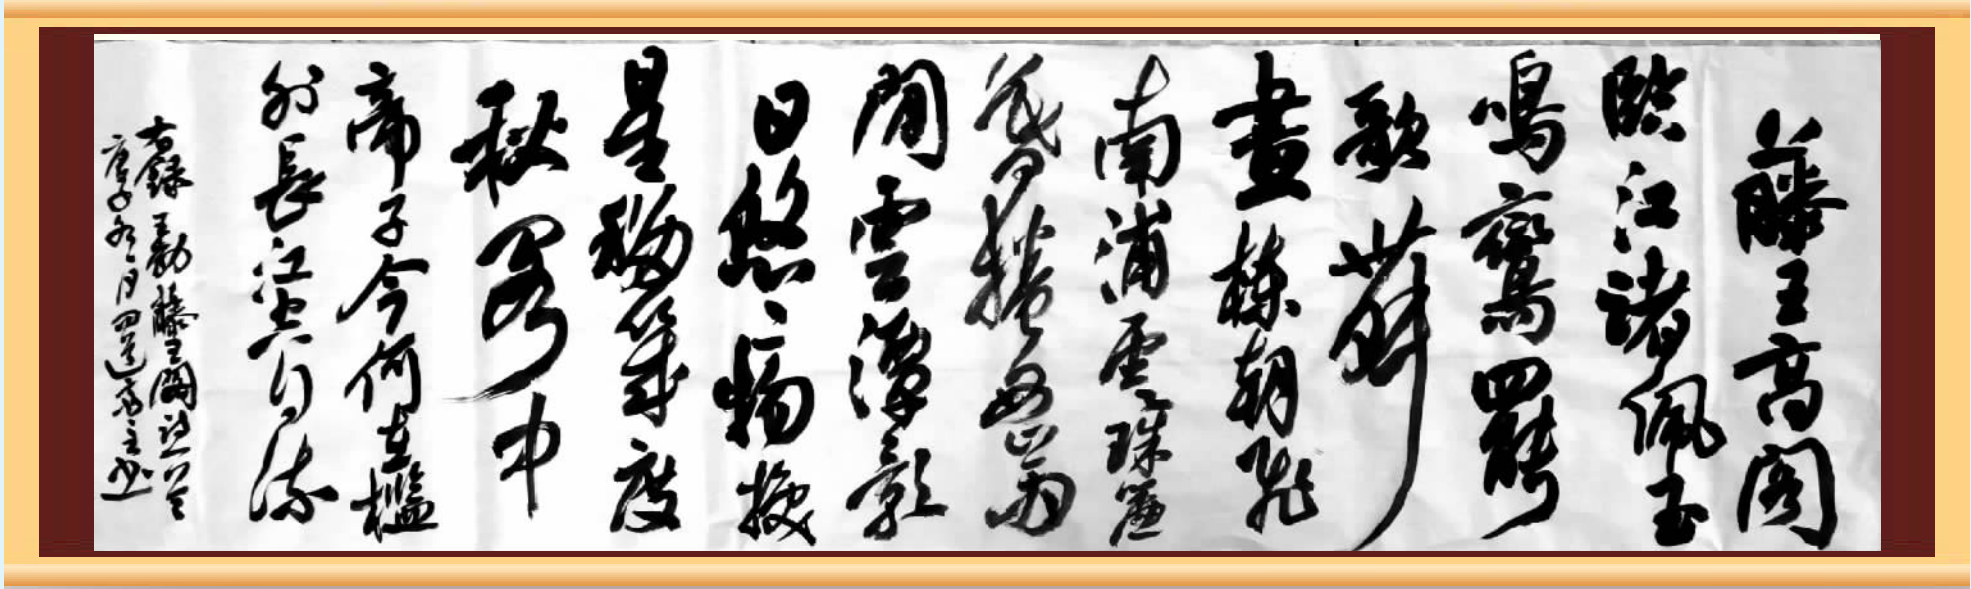 藤王高閣
臨江諸佩玉
鳴鸞罷
歌舞
畫棟朝飛
南浦雲珠簾
暮捲西山雨
閒雲潭影
日悠悠物換
星移幾度
秋閣中
帝子今何在檻
外長江空自流
右錄王勃藤王閣詩一首
庚子冬月四道齋主书